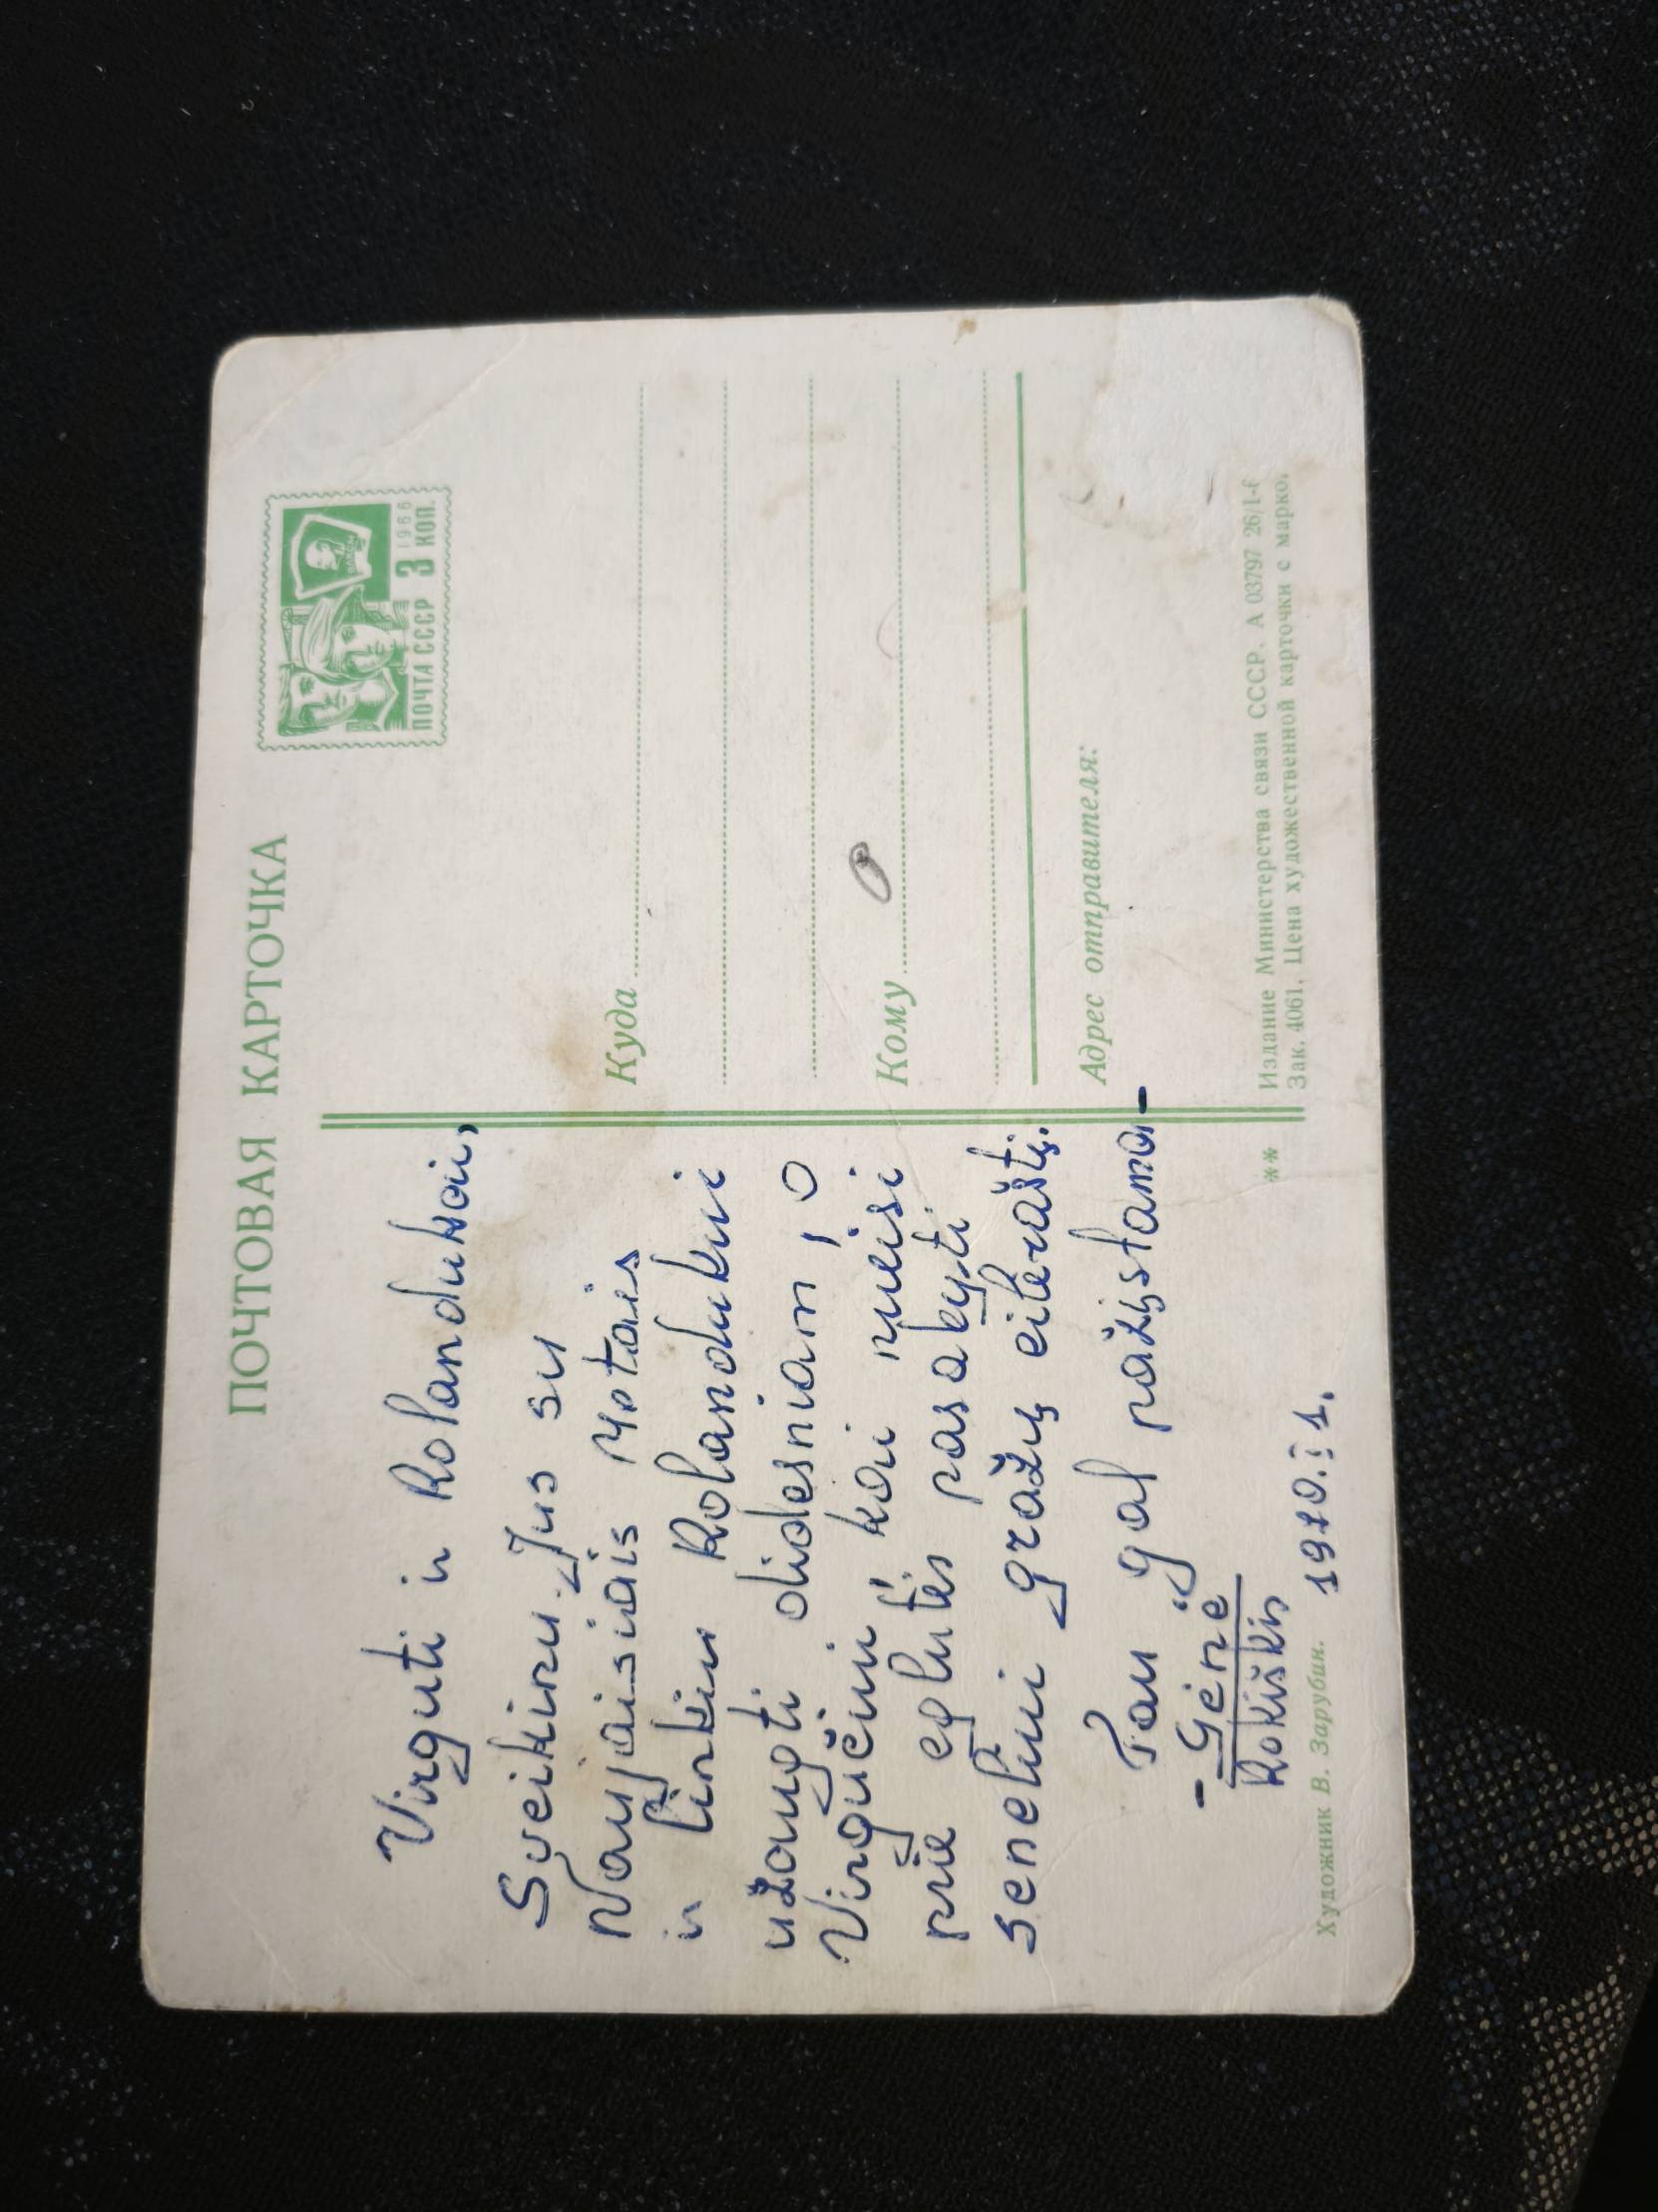 ПОЧТОВАЯ КАРТОЧКА
Virguti ir Rolandukai,
Sveikinu Jus su
Naujaisiais Metais
ir linkiu Rolandukui
užaugti didesniam, o
Virgučiui kai nueisi
prie eglutės pasakyti
seneliui gražų eilėraštį.
Tau gal pažįstama
- Genė -
Rokiškis 1970.I 1.
Художник В. Зарубин.
ПОЧТА СССР 3 КОП.
1966
Куда
Кому
Адрес отправителя:
** Издание Министерства связи СССР. А 03797 26/I-6
Зак. 4061. Цена художественной карточки с марко.